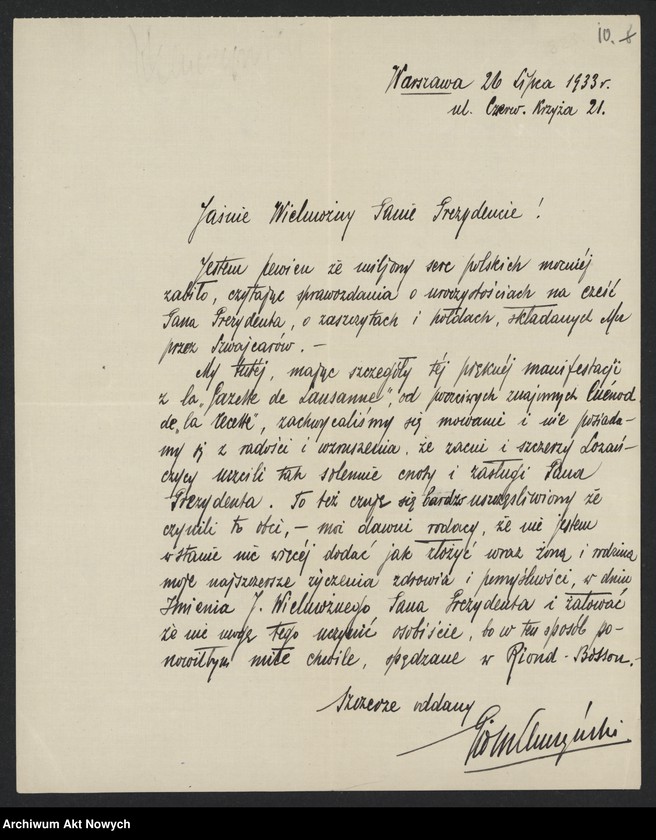 10. 8
Warszawa 26 Lipca 1933 r.
ul. Czerw. Krzyża 21.
Jaśnie Wielmożny Panie Prezydencie!
Jestem pewien że miljony serc polskich mocniéj
zabiło, czytając sprawozdania o uroczystościach na cześć
Pana Prezydenta, o zaszczytach i hołdach, składanych Mu
przez Szwajcarów. —
My tutéj, mając szczegóły téj pięknéj manifestacji
z la „Gazette de Lausanne", od poczciwych znajomych Cuénod
de „la Recette", zachwycaliśmy się mowami i nie posiada-
my się z radości i wzruszenia, że zacni i szczerzy Lozań-
czycy uczcili tak solennie cnoty i zasługi Pana
Prezydenta. To też czuję się bardzo uszczęśliwiony że
czynili to obci, — moi dawni rodacy, że nie jestem
w stanie nic więcéj dodać jak złożyć wraz żoną i rodziną
moje najszczersze życzenia zdrowia i pomyślności, w dniu
Imienia J. Wielmożnego Pana Prezydenta i żałować
że nie mogę tego uczynić osobiście, bo w ten sposób po-
nowiłbym miłe chwile, spędzane w Riond-Bosson. —
Szczerze oddany
Archiwum Akt Nowych